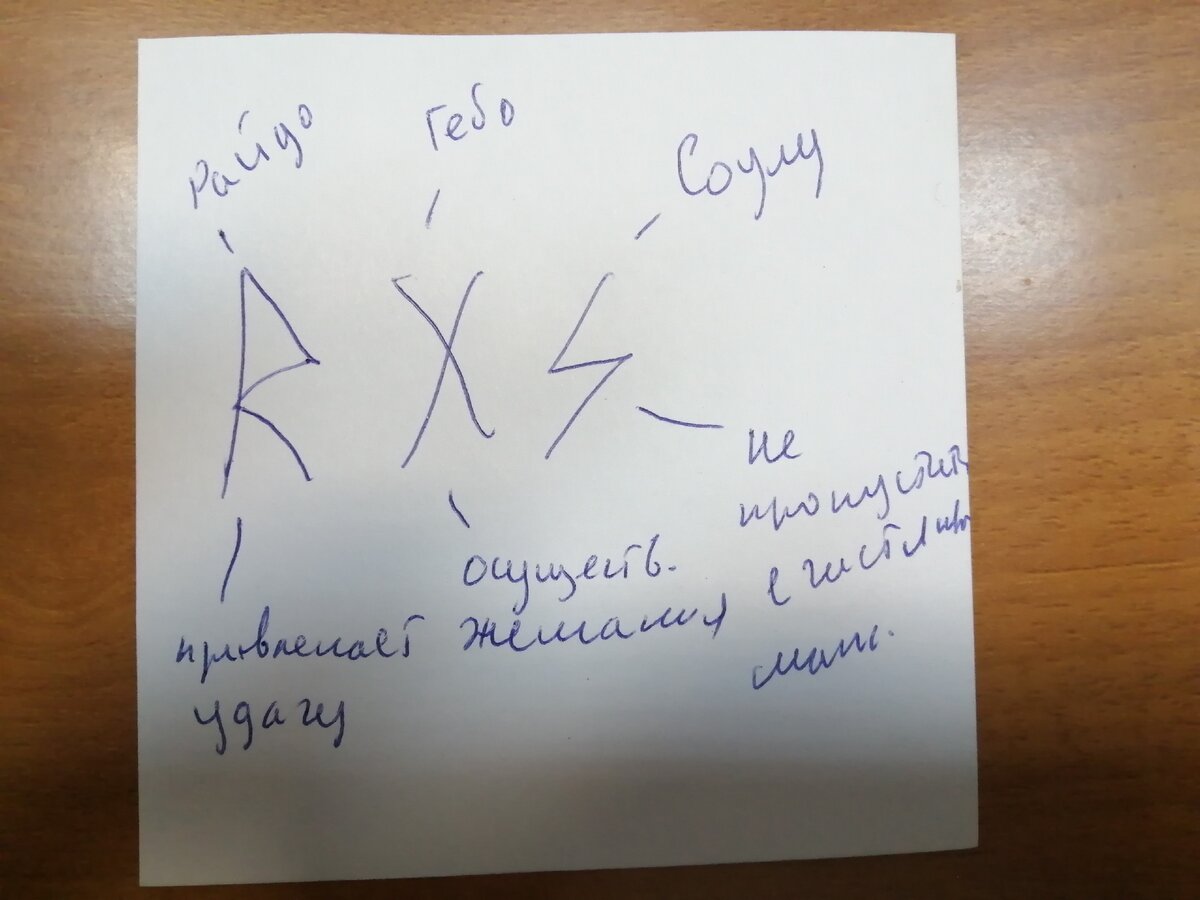 Райдо
Гебо
Соулу
привлекает
удачу
осуществ.
желания
не
пропустить
счастлив